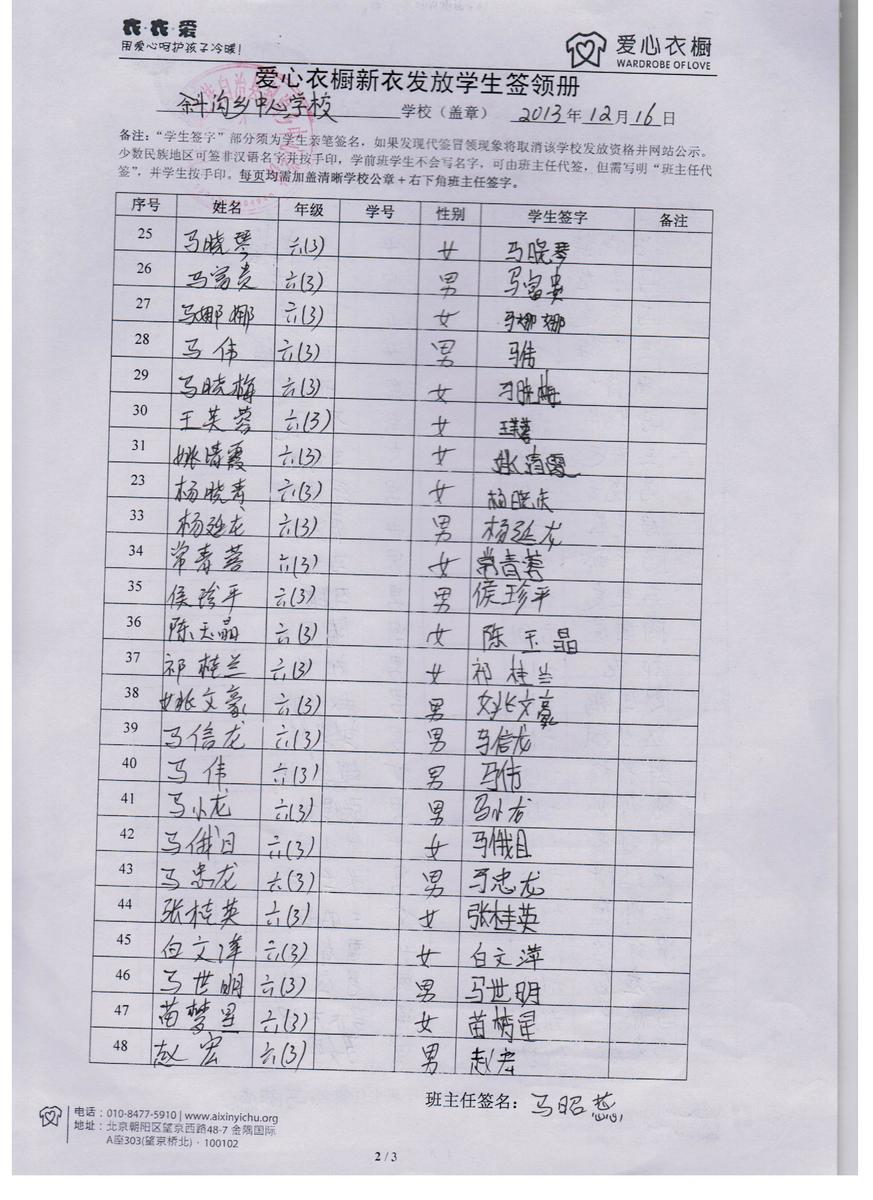 衣·衣·爱
用爱心呵护孩子冷暖!
爱心衣橱
WARDROBE OF LOVE
爱心衣橱新衣发放学生签领册
斜沟乡中心学校 学校（盖章） 2013年12月16日
备注：“学生签字”部分须为学生亲笔签名，如果发现代签冒领现象将取消该学校发放资格并网站公示。
少数民族地区可签非汉语名字并按手印，学前班学生不会写名字，可由班主任代签，但需写明“班主任代
签”，并学生按手印。每页均需加盖清晰学校公章+右下角班主任签字。
序号 姓名 年级 学号 性别 学生签字 备注
25 马晓琴 六(3) 女 马晓琴
26 马富贵 六(3) 男 马富贵
27 马娜娜 六(3) 女 马娜娜
28 马伟 六(3) 男 马伟
29 马晓梅 六(3) 女 马晓梅
30 王芙蓉 六(3) 女 王芙蓉
31 姚清霞 六(3) 女 姚清霞
23 杨晓青 六(3) 女 杨晓庆
33 杨延龙 六(3) 男 杨延龙
34 常青蓉 六(3) 女 常青蓉
35 侯珍平 六(3) 男 侯珍平
36 陈玉晶 六(3) 女 陈玉晶
37 祁桂兰 六(3) 女 祁桂兰
38 姚文豪 六(3) 男 姚文豪
39 马信龙 六(3) 男 马信龙
40 马伟 六(3) 男 马伟
41 马小龙 六(3) 男 马小龙
42 马俄目 六(3) 女 马俄目
43 马忠龙 六(3) 男 马忠龙
44 张桂英 六(3) 女 张桂英
45 白文萍 六(3) 女 白文萍
46 马世明 六(3) 男 马世明
47 苗梦星 六(3) 女 苗梦星
48 赵宏 六(3) 男 赵宏
班主任签名：马昭蕊
电话：010-8477-5910 | www.aixinyichu.org
地址：北京朝阳区望京西路48-7 金隅国际
A座303(望京桥北)·100102
2 / 3